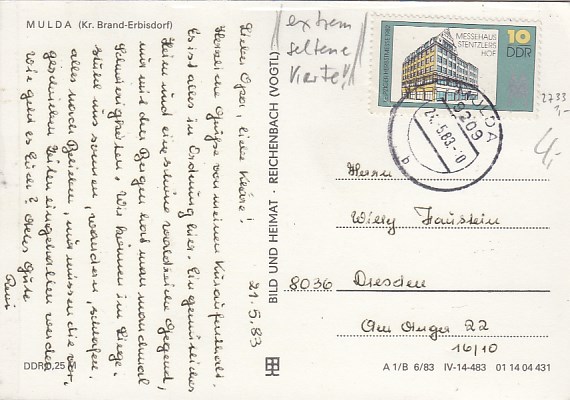 MULDA (Kr. Brand-Erbisdorf)
extrem
seltene
Karte!!
MESSEHAUS
STENTZLERS
HOF
10
DDR
LEIPZIGER HERBSTMESSE 1982
MULDA
9209
21.5.83-0
b
2733
1,-
4,-
21.5.83
Lieber Opa, liebe Kläre!
Herzliche Grüße von meinem Kuraufenthalt.
Es ist alles in Ordnung hier. Ein gemütliches
Heim und eine schöne waldreiche Gegend,
nur mit den Bergen hat man manchmal
Schwierigkeiten. Wir können im Liege-
stuhl uns sonnen, wandern, schlafen,
alles nach Belieben, nur müssen die vor-
geschrieben Zeiten eingehalten werden.
Wie geht es Euch? Alles Gute
BILD UND HEIMAT · REICHENBACH (VOGTL)
Herrn
Willy Faustein
8036 Dresden
Am Anger 22
16/10
DDR 0,25 M
A 1/B 6/83 IV-14-483 01 14 04 431